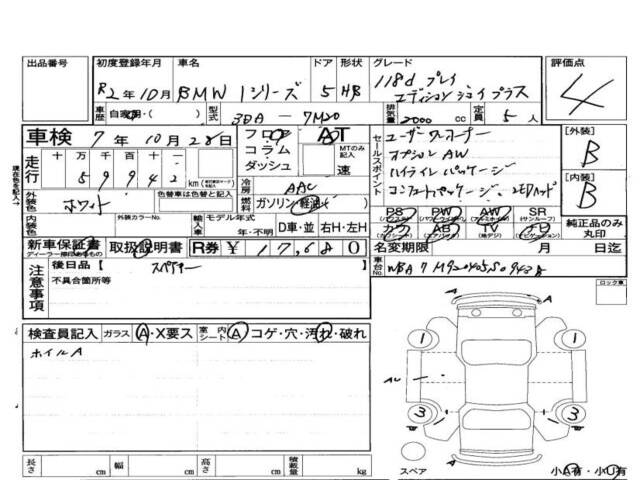 出品番号
初度登録年月
R2年10月
車名
BMW 1シリーズ
ドア
5
形状
HB
グレード
118d プレイ
エディションジョイプラス
評価点
4
車歴 自家用・( )
型式
3DA - 7M20
排気量
2000 cc
定員
5人
車検 7年10月28日
フロア AT
コラム MTのみ記入
ダッシュ 速
走行
十 万 千 百 十 一
5 9 9 4 2
km
冷房 AAC
燃料 ガソリン・軽油・
外装色 ホワイト
色替車は色替と記入
内装色
外装カラーNo.
輸入車 モデル年式
年・不明
D車・並 右H・左H
セールスポイント
ユーザーワンオーナー
オプションAW
ハイラインパッケージ
コンフォートパッケージ・LEDヘッド
PS PW AW SR
(サンルーフ)
カワ AB TV ナビ
(エアバッグ) (地デジ) (ナビゲーション)
[外装]
B
[内装]
B
純正品のみ
丸印
新車保証書 取扱説明書 R券 ¥17,680
名変期限 月 日迄
注意事項
後日品 [ スペアキー ]
不具合箇所等
車台No.
ロック車
検査員記入 ガラス A・X要ス 室内シート A コゲ・穴・汚れ・破れ
ホイルA
A
1 1
3 3
A
スペア
小A有・小U有
長さ cm 幅 cm 高さ cm 積載量 kg